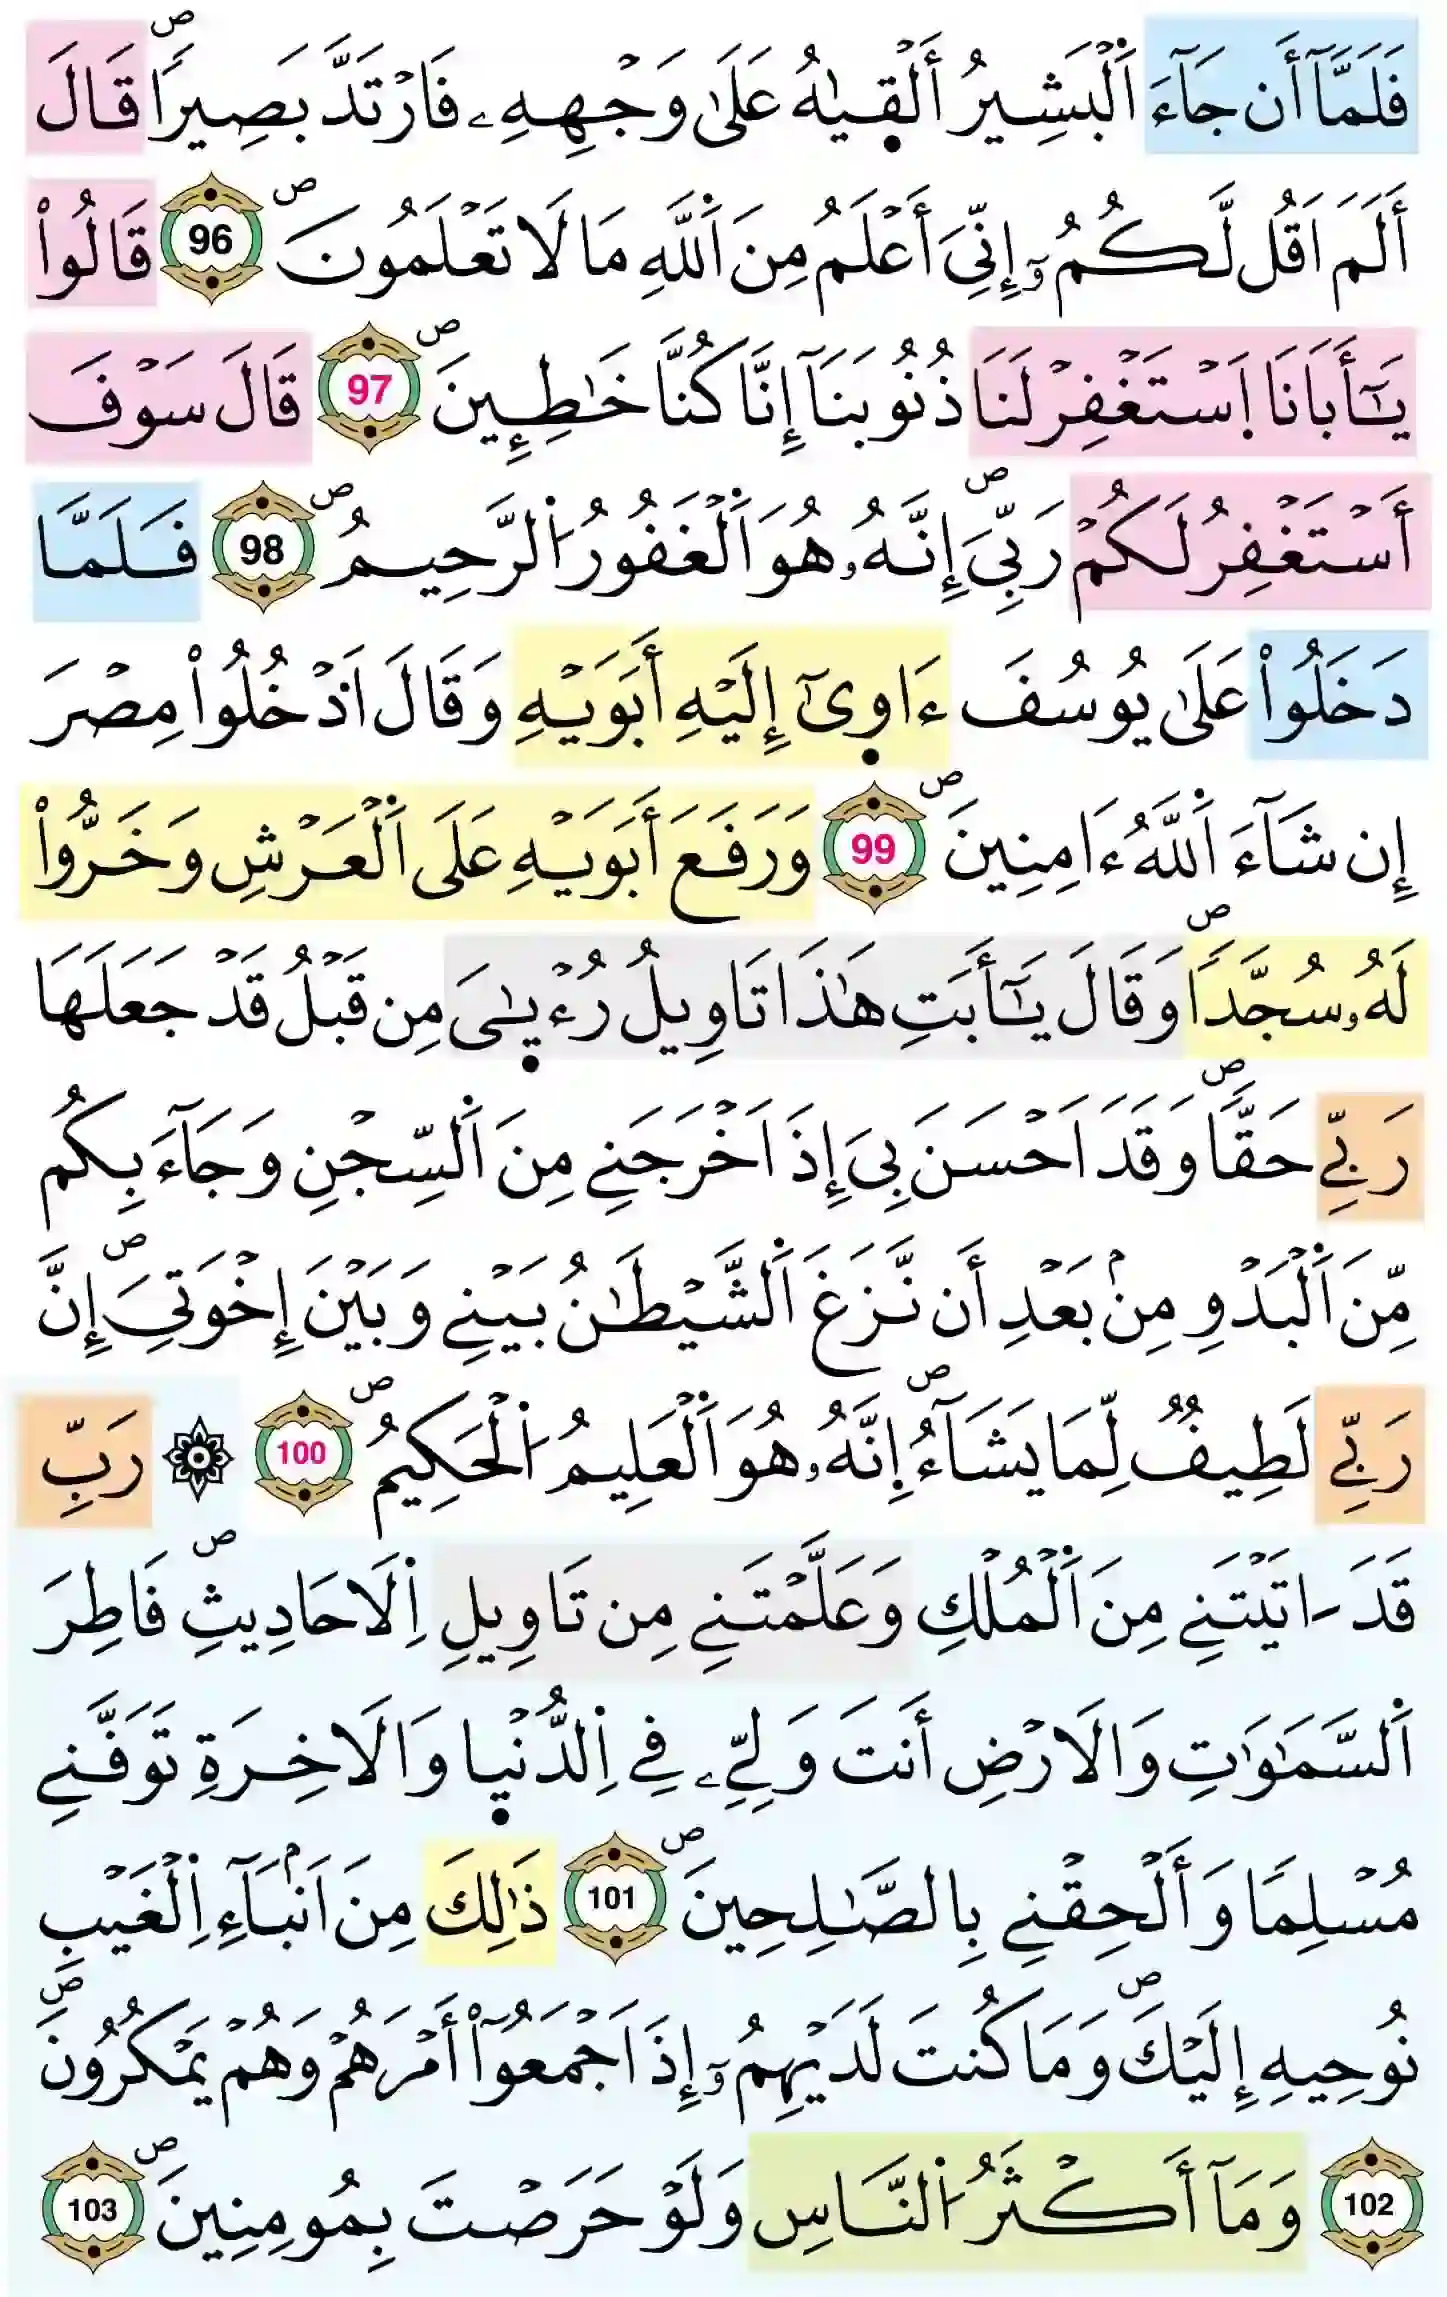 فَلَمَّآ أَن جَآءَ اَ۬لْبَشِيرُ أَلْق۪يٰهُ عَلَىٰ وَجْهِهِۦ فَارْتَدَّ بَصِيراٗۖ قَالَ
أَلَمَ اَقُل لَّكُمُۥٓ إِنِّيَ أَعْلَمُ مِنَ اَ۬للَّهِ مَا لَا تَعْلَمُونَۖ 96 قَالُواْ
يَٰٓأَبَانَا اَ۪سْتَغْفِرْ لَنَا ذُنُوبَنَآ إِنَّا كُنَّا خَٰطِـِٕينَۖ 97 قَالَ سَوْفَ
أَسْتَغْفِرُ لَكُمْ رَبِّيَۖ إِنَّهُۥ هُوَ اَ۬لْغَفُورُ اُ۬لرَّحِيمُۖ 98 فَلَمَّا
دَخَلُواْ عَلَىٰ يُوسُفَ ءَاو۪ىٰٓ إِلَيْهِ أَبَوَيْهِ وَقَالَ اَ۟دْخُلُواْ مِصْرَ
إِن شَآءَ اَ۬للَّهُ ءَامِنِينَۖ 99 وَرَفَعَ أَبَوَيْهِ عَلَى اَ۬لْعَرْشِ وَخَرُّواْ
لَهُۥ سُجَّداٗۖ وَقَالَ يَٰٓأَبَتِ هَٰذَا تَاوِيلُ رُءْيٰ۪يَ مِن قَبْلُ قَدْ جَعَلَهَا
رَبِّے حَقّاٗۖ وَقَدَ اَحْسَنَ بِيَ إِذَ اَخْرَجَنِے مِنَ اَ۬لسِّجْنِ وَجَآءَ بِكُم
مِّنَ اَ۬لْبَدْوِ مِنۢ بَعْدِ أَن نَّزَغَ اَ۬لشَّيْطَٰنُ بَيْنِے وَبَيْنَ إِخْوَتِيَۖ إِنَّ
رَبِّے لَطِيفٞ لِّمَا يَشَآءُۖ اِ۪نَّهُۥ هُوَ اَ۬لْعَلِيمُ اُ۬لْحَكِيمُۖ 100 ۞ رَبِّ
قَدَ اٰتَيْتَنِے مِنَ اَ۬لْمُلْكِ وَعَلَّمْتَنِے مِن تَاوِيلِ اِ۬لَاحَادِيثِۖ فَاطِرَ
اَ۬لسَّمَٰوَٰتِ وَالَارْضِ أَنتَ وَلِيِّۦ فِے اِ۬لدُّنْي۪ا وَالَاخِرَةِ تَوَفَّنِے
مُسْلِماٗ وَأَلْحِقْنِے بِالصَّٰلِحِينَۖ 101 ذَٰلِكَ مِنَ اَنۢبَآءِ اِ۬لْغَيْبِ
نُوحِيهِ إِلَيْكَۖ وَمَا كُنتَ لَدَيْهِمُۥٓ إِذَ اَجْمَعُوٓاْ أَمْرَهُمْ وَهُمْ يَمْكُرُونَۖ
102 وَمَآ أَكْثَرُ اُ۬لنَّاسِ وَلَوْ حَرَصْتَ بِمُومِنِينَۖ 103